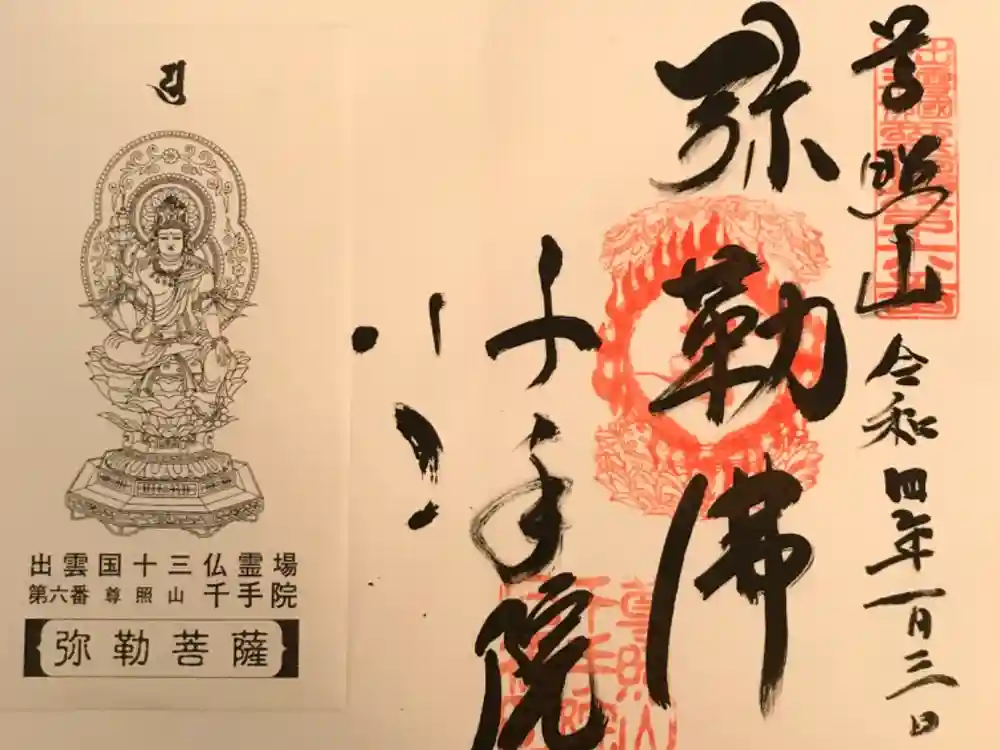 尊照山 令和四年一月三日
弥勒佛
千手院
出雲国十三仏霊場
第六番 尊照山 千手院
弥勒菩薩